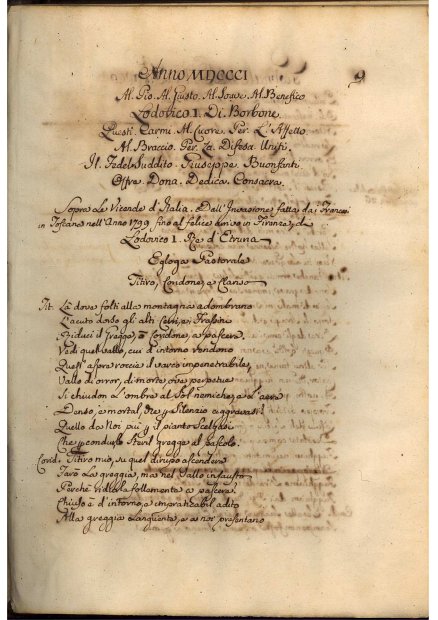 Anno MDCCCI
9
Al. Pio. Al. Giusto. Al. Soave. Al. Benefico
Lodovico I. Di. Borbone.
Questi. Carmi. Al. Cuore. Per. L'Affetto
Al. Braccio. Per. La. Difesa. Uniti.
Il. Fedel. Suddito. Giuseppe. Buonfanti
Offre. Dona. Dedica. Consacra.
Sopra Le Vicende d'Italia. Dall'Invasione fatta da i Francesi
in Toscana nell'Anno 1799 fino al felice arrivo in Firenze, di
Lodovico I. Re d'Etruria
Egloga Pastorale
Titiro, Coridone, e
Tit. Là dove folti alla montagna adombrano
L'acuto dorso gli alti Cerri, e i Frassini
Riduci il Gregge, o Coridone, a pascere.
Vedi quel vallo, cui d'intorno rendono
Quest'aspre roccie il varco impenetrabile,
Vallo di orror, di morte, ove perpetue
Si chiudon l'ombre al Sol nemiche, e l'aera
Denso, e mortal, che pel Silenzio aggravasi?
Quello da Noi più pel pianto
Che per condurlo Steril gregge al pascolo.
Corid. Titiro mio, su quel dirupo ascendere
Farò La greggia, ma nel Vallo infausto
Perchè ridurla follemente a pascere?
Chiuso è d'intorno, e impraticabil adito
Alla greggia Languente, e a noi presentano